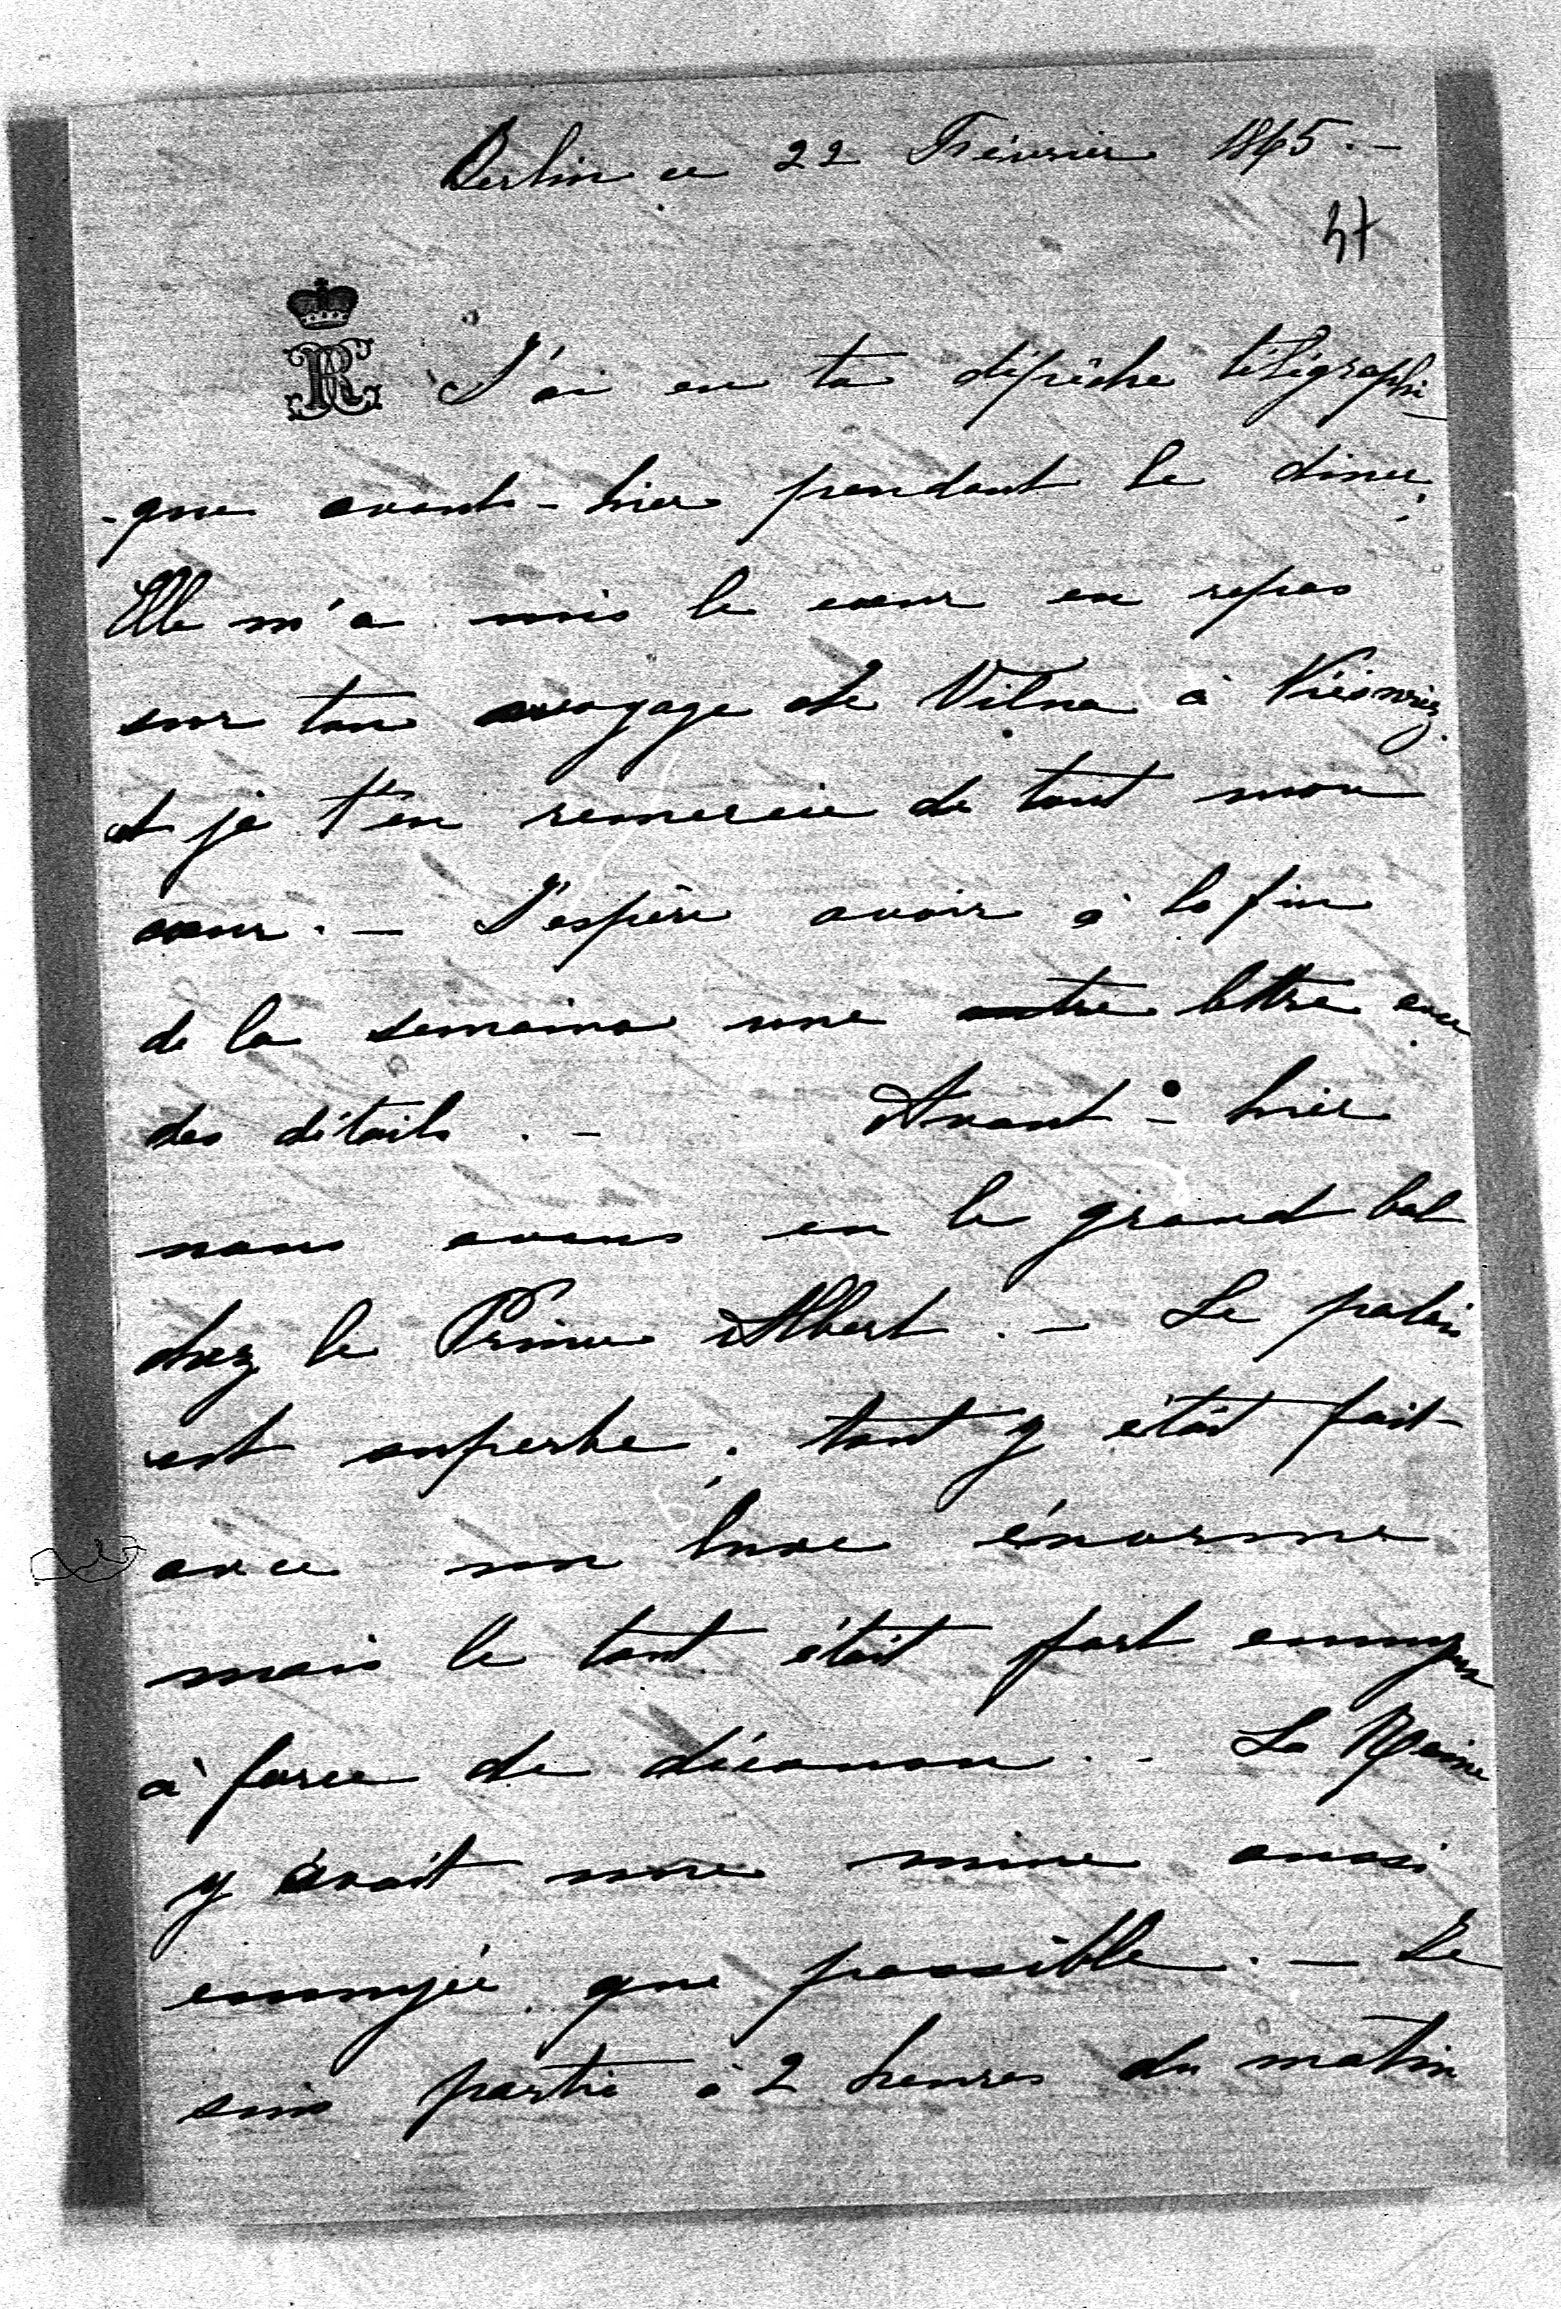 Berlin ce 22 Février 1865. -
37
J'ai eu ta dépêche télégraphi-
-que avant-hier pendant le diner.
Elle m'a mis le cœur en repos
sur ton voyage de Vilna à
et je t'en remercie de tout mon
cœur. - J'espère avoir à la fin
de la semaine une autre lettre avec
des détails. - Avant-hier
nous avons eu le grand bal
chez le Prince Albert. - Le palais
est superbe; tout y était fait
avec un luxe énorme
mais le tout était fort ennuyeux
à force de décorum. - La Reine
y avait une mine aussi
ennuyée que possible. - Je
suis parti à 2 heures du matin